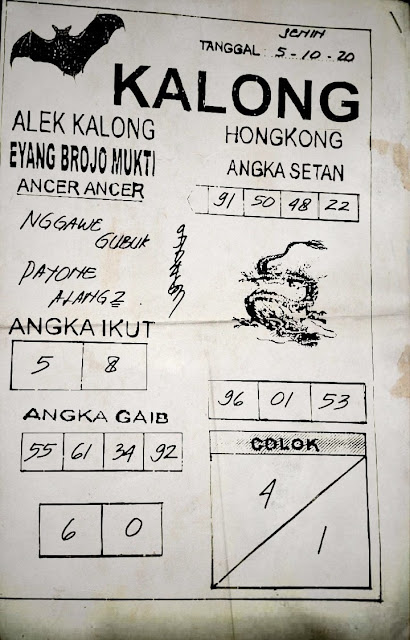 SENIN
TANGGAL 5-10-20
KALONG
ALEK KALONG
EYANG BROJO MUKTI
ANCER ANCER
HONGKONG
ANGKA SETAN
91 50 48 22
NGGAWE
GUBUK
PAYONE
ALANG2.
ANGKA IKUT
5 8
96 01 53
ANGKA GAIB
55 61 34 92
COLOK
4
1
6 0